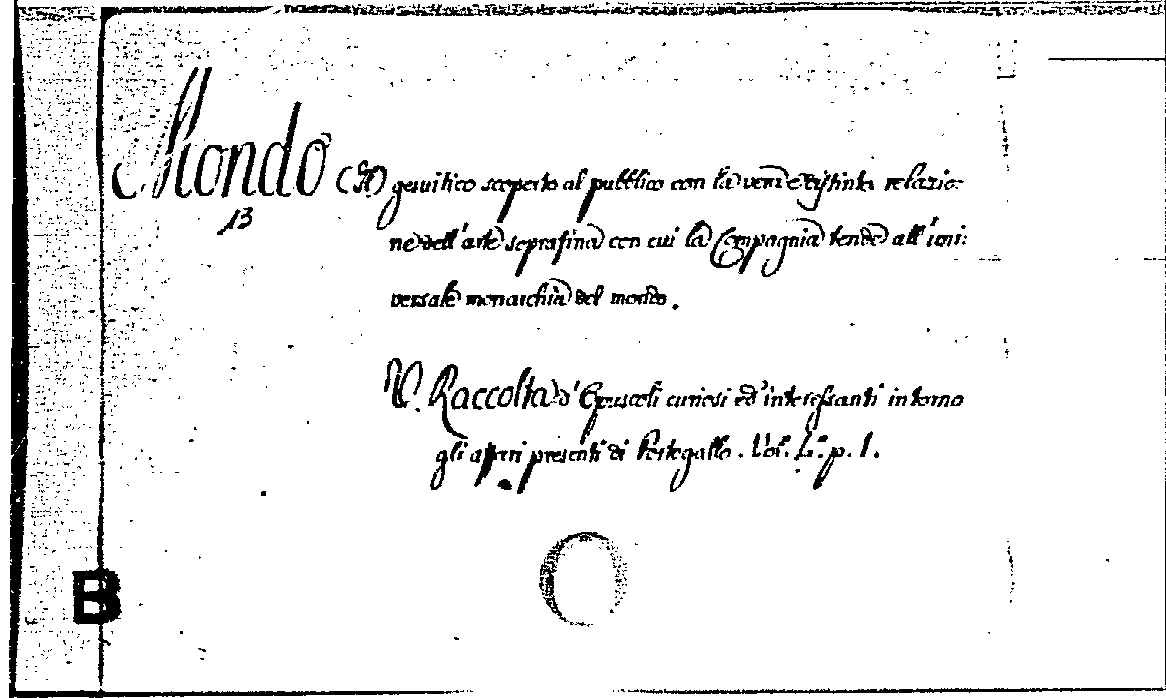 Mondo (Il) gesuitico scoperto al pubblico con la vera e distinta relazio:
13
ne dell'arte soprafina con cui la Compagnia tende all'uni:
versale monarchia del mondo.
V. Raccolta d'Opuscoli curiosi ed interessanti intorno
gli affari presenti di Portogallo. Vol. p. 1.
B